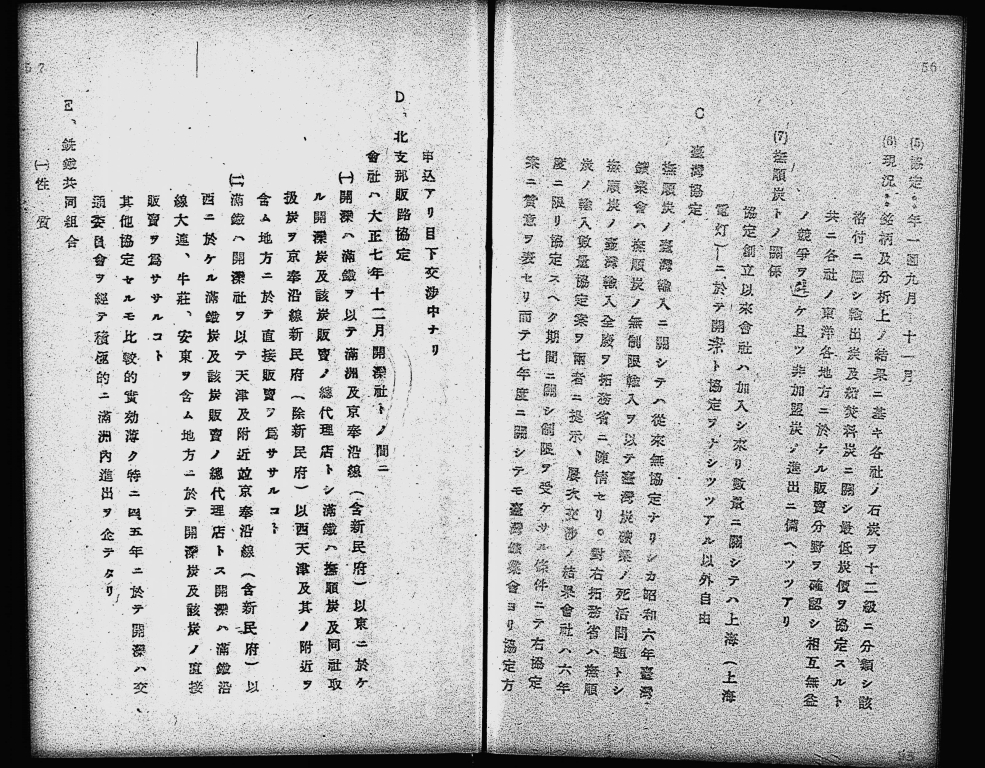 56
(5) 協定…年一回九月 十一月
(6) 現況…銘柄及分析上ノ結果ニ基キ各社ノ石炭ヲ十二級ニ分類シ該
格付ニ應シ輸出炭及船焚料炭ニ關シ最低炭價ヲ協定スルト
共ニ各社ノ東洋各地方ニ於ケル販賣分野ヲ確認シ相互無益
ノ競爭ヲ避ケ且ツ非加盟炭ノ進出ニ備ヘツツアリ
(7) 撫順炭トノ關係
協定創立以來會社ハ加入シ來リ數量ニ關シテハ上海(上海
電灯)ニ於テ開灤ト協定ヲナシツツアル以外自由
C 臺灣協定
撫順炭ノ臺灣輸入ニ關シテハ從來無協定ナリシカ昭和六年臺灣
鑛業會ハ撫順炭ノ無制限輸入ヲ以テ臺灣炭礦業ノ死活問題トシ
撫順炭ノ臺灣輸入全廢ヲ拓務省ニ陳情セリ。對右拓務省ハ撫順
炭ノ輸入數量協定案ヲ兩者ニ提示、屢次交渉ノ結果會社ハ六年
度ニ限リ協定スヘク期間ニ關シ制限ヲ受ケサル條件ニテ右協定
案ニ贊意ヲ表セリ而テ七年度ニ關シテモ臺灣鑛業會ヨリ協定方
57
申込アリ目下交渉中ナリ
D、北支那販路協定
會社ハ大正七年十二月開灤社トノ間ニ
(一)開灤ハ滿鐵ヲ以テ滿洲及京奉沿線(含新民府)以東ニ於ケ
ル開灤炭及該炭販賣ノ總代理店トシ滿鐵ハ撫順炭及同社取
扱炭ヲ京奉沿線新民府(除新民府)以西天津及其ノ附近ヲ
含ム地方ニ於テ直接販賣ヲ爲ササルコト
(二)滿鐵ハ開灤社ヲ以テ天津及附近竝京奉沿線(含新民府)以
西ニ於ケル滿鐵炭及該炭販賣ノ總代理店トス開灤ハ滿鐵沿
線大連、牛莊、安東ヲ含ム地方ニ於テ開灤炭及該炭ノ直接
販賣ヲ爲ササルコト
其他協定セルモ比較的實効薄ク特ニ四五年ニ於テ開灤ハ交、
項委員會ヲ經テ積極的ニ滿洲內進出ヲ企テタリ
E、銑鐵共同組合
(一)性 質